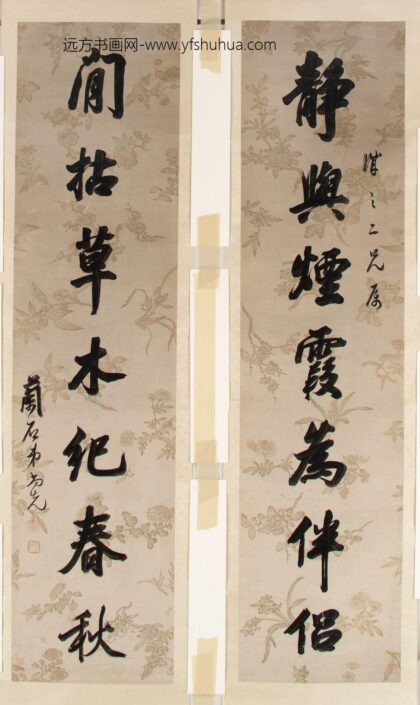 远方书画网-www.yfshuhua.com
靜與煙霞為伴侶
之二兄属
閒拈草木紀春秋
蘭石弟尚先